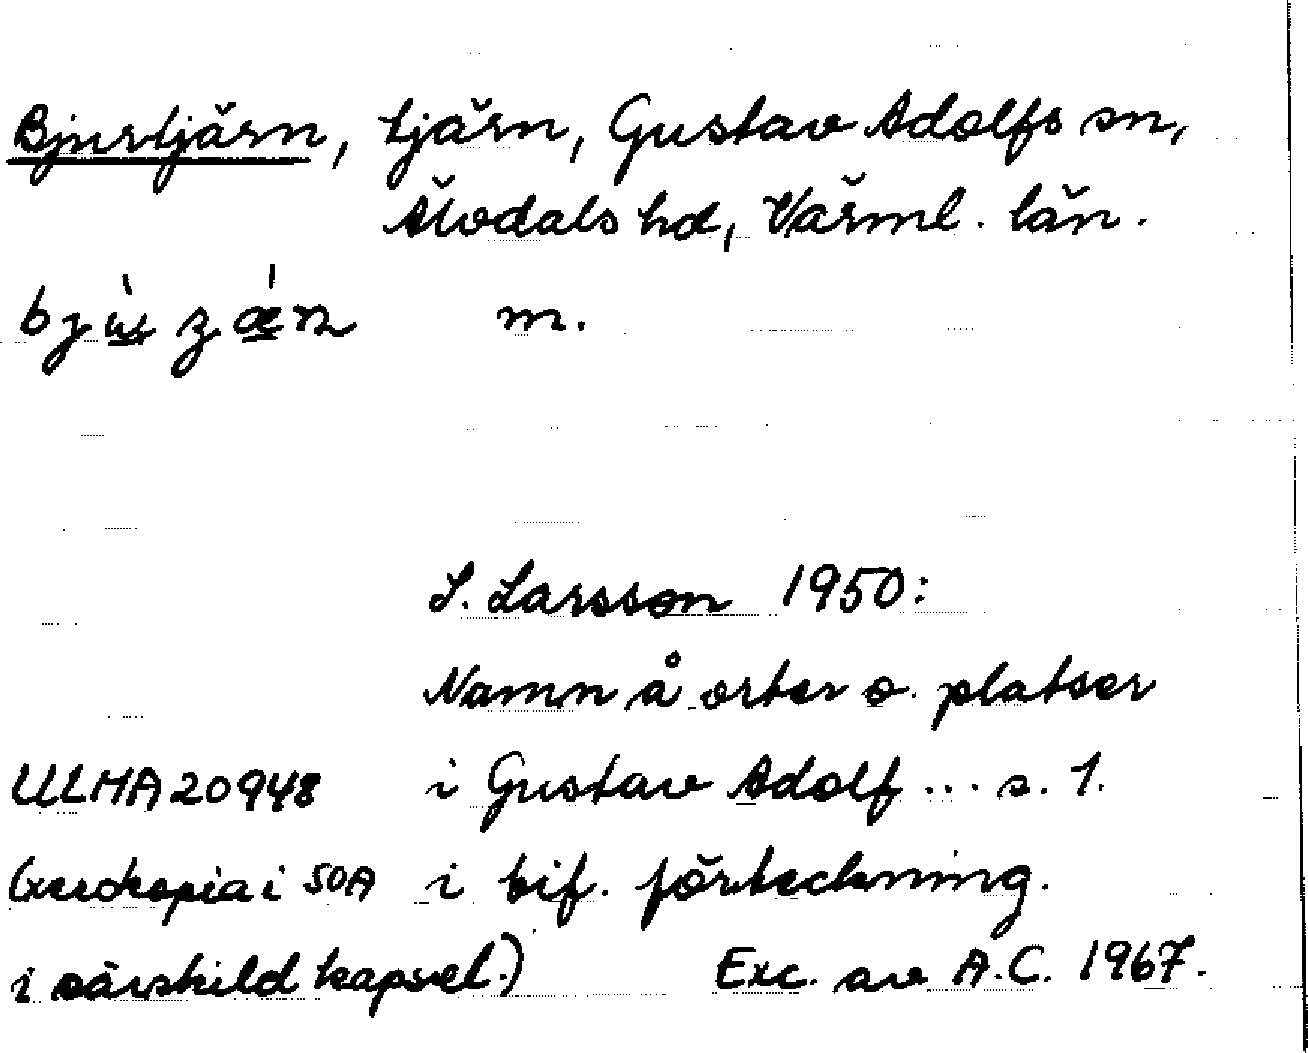 Bjurtjärn, tjärn, Gustav Adolfs sn,
Älvdals hd, Värml. län.
m.
S. Larsson 1950:
Namn å orter o. platser
ULMA 20948 i Gustav Adolf ... s. 1.
(xerokopia i SOA i bif. förteckning.
i särskild kapsel.) Exc. av A.C. 1967.